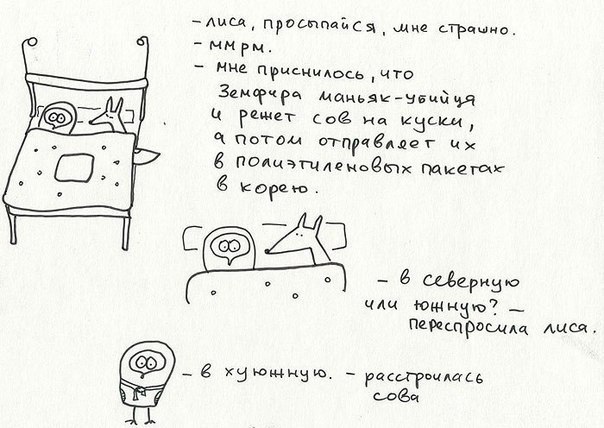 - лиса, просыпайся, мне страшно.
- ммрм.
- мне приснилось, что
Земфира маньяк-убийця
и режет сов на куски,
а потом отправляет их
в полиэтиленовых пакетах
в корею.
- в северную
или южную? -
переспросила лиса.
- в хуюжную. - расстроилась
сова